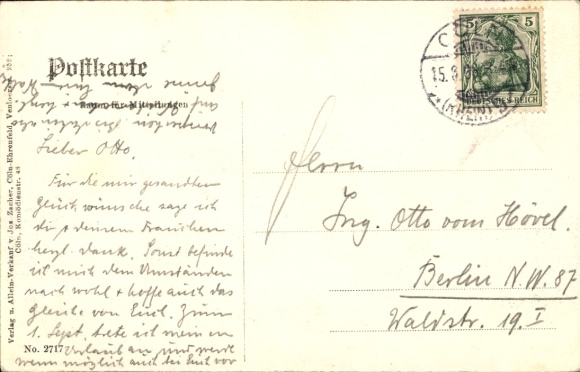 Postkarte
Raum für Mitteilungen
Lieber Otto.
Für die mir gesandten
Glückwünsche sage ich
dir & deinem Frauchen
herzl. Dank. Sonst befinde
ich mich den Umständen
nach wohl + hoffe auch das
Gleiche von Euch. Zum
1. Sept. trete ich meinen
Urlaub an und werde
wenn möglich auch bei Euch vor
No. 2717
Verlag u. Allein-Verkauf v. Jos. Zacher, Cöln-Ehrenfeld,
Cöln, Komödienstr.
CÖLN
15.8.
(RHEIN)
5 5
DEUTSCHES REICH
Herrn
Ing. Otto vom Hövel.
Berlin N.W. 87
Waldstr. 19. I